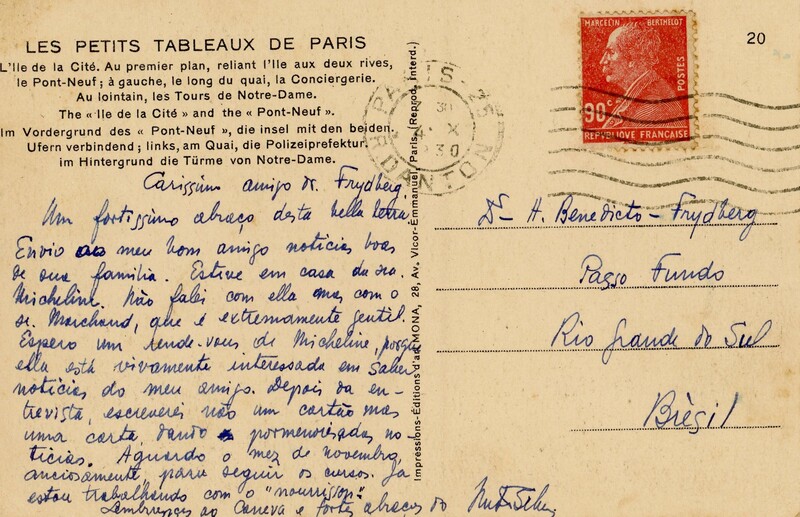 LES PETITS TABLEAUX DE PARIS
L'Ile de la Cité. Au premier plan, reliant l'Ile aux deux rives,
le Pont-Neuf; à gauche, le long du quai, la Conciergerie.
Au lointain, les Tours de Notre-Dame.
The « Ile de la Cité » and the « Pont-Neuf ».
Im Vordergrund des « Pont-Neuf », die insel mit den beiden.
Ufern verbindend; links, am Quai, die Polizeiprefektur.
im Hintergrund die Türme von Notre-Dame.
Carissimo amigo dr. Frydberg,
Um fortissimo abraço desta bella terra
Envio ao meu bom amigo noticias boas
de sua familia. Estive em casa da sra.
Micheline. Não falei com ella mas com o
sr. Marchand, que é extremamente gentil.
Espero um rendez-vous de Micheline, porque
ella está vivamente interessada em saber
noticias do meu amigo. Depois da en-
trevista, escreverei não um cartão mas
uma carta, dando pormenorisadas no-
ticias. Aguardo o mez de novembro,
anciosamente, para seguir os cursos. Ja
estou trabalhando com o "nourrisson".
Lembranças ao Caneva e fortes abraços do
Impressions-Éditions d'art MONA, 28, Av. Victor-Emmanuel, Paris. (Reprod. Interd.)
PARIS-25
R. DANTON
30
X
30
MARCELIN BERTHELOT
POSTES
90 c
REPUBLIQUE FRANÇAISE
20
Dr. H. Benedicto-Frydberg
Passo Fundo
Rio Grande do Sul
Brèsil